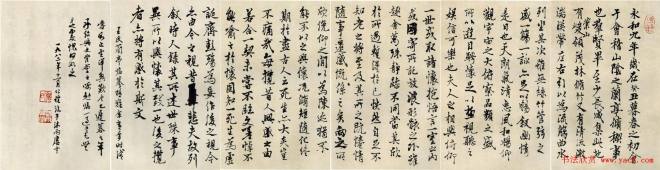 永和九年歲在癸丑暮春之初會
于會稽山陰之蘭亭脩禊事
也群賢畢至少長咸集此地
有崇山峻領茂林脩竹又有清流激
湍暎帶左右引以為流觴曲水
列坐其次雖無絲竹管弦之
盛一觴一詠亦足以暢敘幽情
是日也天朗氣清惠風和暢仰
觀宇宙之大俯察品類之盛
所以遊目騁懷足以極視聽之
娛信可樂也夫人之相與俯仰
一世或取諸懷抱悟言一室之內
或因寄所託放浪形骸之外雖
趣舍萬殊靜躁不同當其欣
於所遇暫得於己快然自足不
知老之將至及其所之既惓情
隨事遷感慨係之矣向之所
欣俛仰之間以為陳迹猶不
能不以之興懷況脩短隨化終
期於盡古人云死生亦大矣豈
不痛哉每攬昔人興感之由
若合一契未嘗不臨文嗟悼不
能喻之於懷固知一死生為虛
誕齊彭殤為妄作後之視今
亦由今之視昔悲夫故列
敘時人錄其所述雖世殊事
異所以興懷其致一也後之攬
者亦將有感於斯文
书法欣赏
www.yac8.com